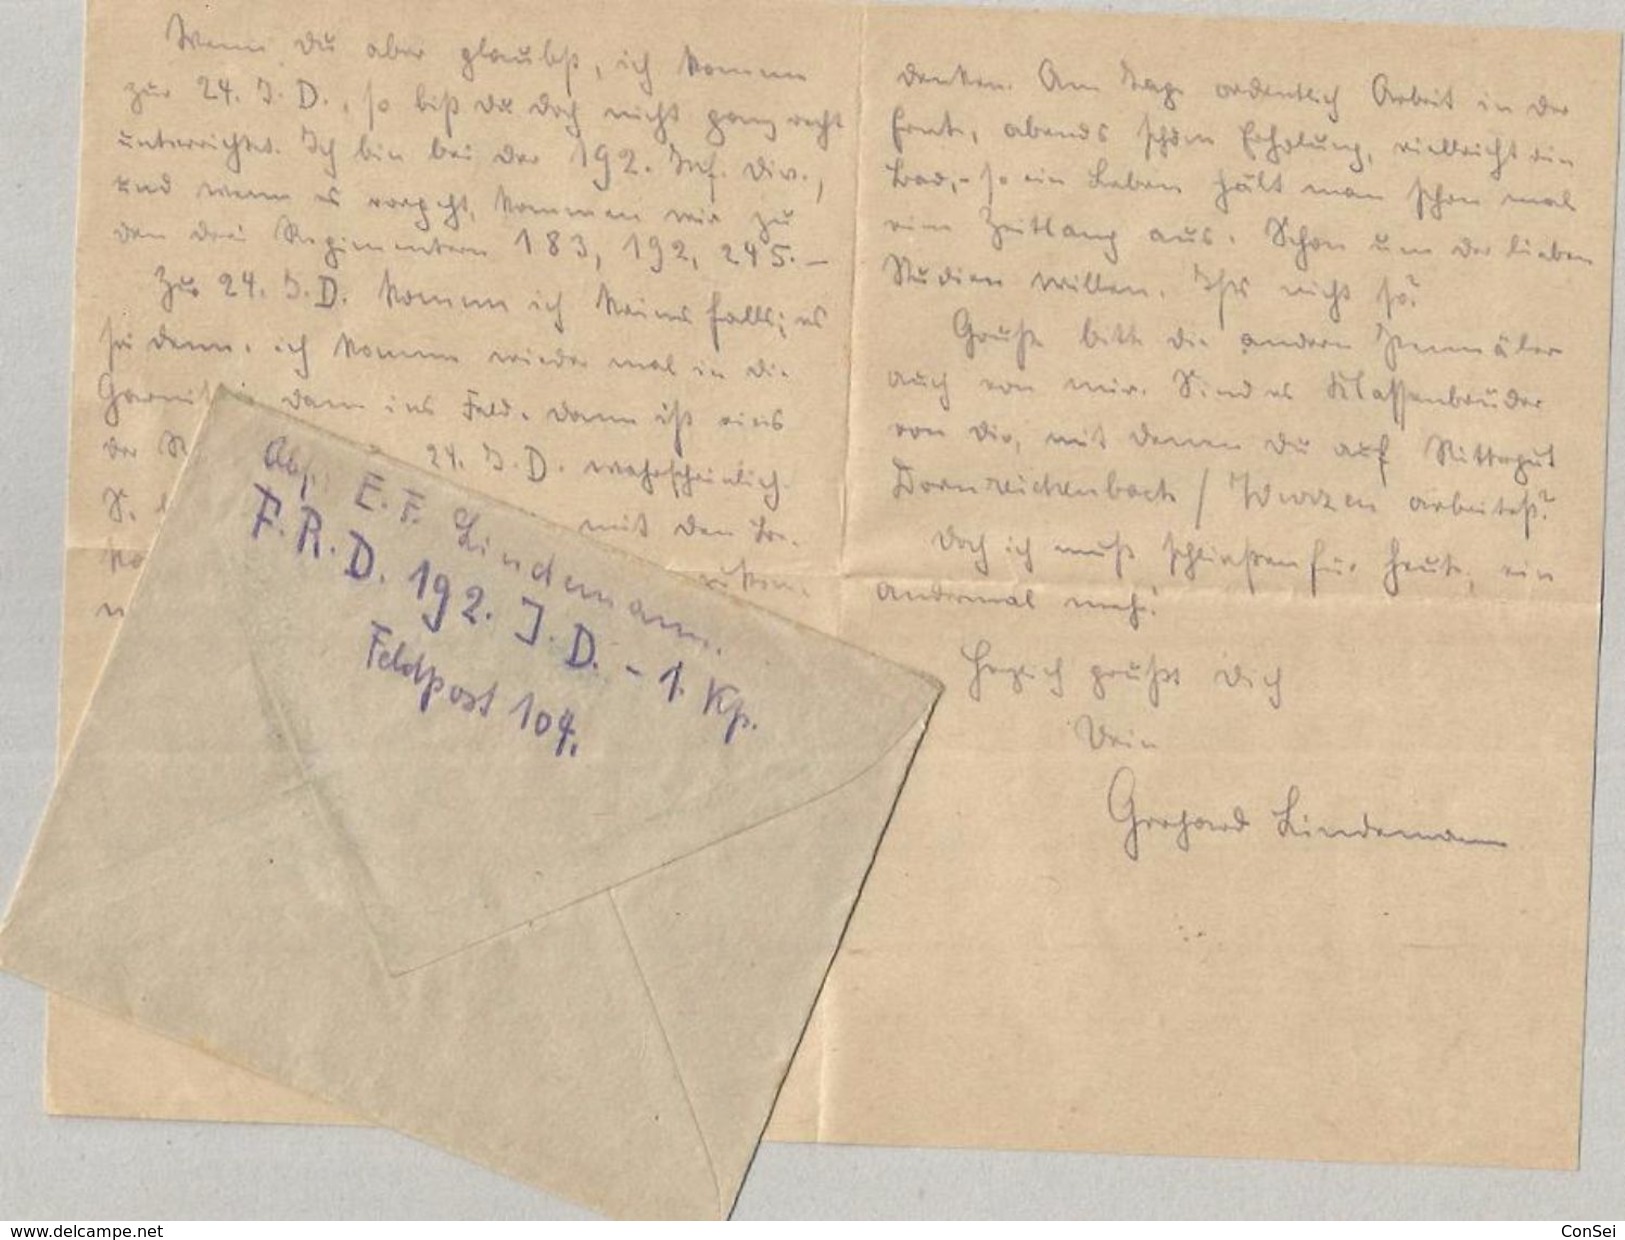 Wenn Du aber glaubst, ich komme
zur 24. I. D., so bist Du doch nicht ganz recht
unterrichtet. Ich bin bei der 192. Inf. Div.,
und wenn es vorgeht, kommen wir zu
den drei Regimentern 183, 192, 245. –
Zur 24. I. D. komme ich keinesfalls; es
sei denn, ich komme wieder mal in die
Garnison dann ins Feld. Dann ist eins
der 24. I. D. wahrscheinlich.
mit den
denken. Am Tage ordentlich Arbeit in der
Ernte, abends schöne Erholung, vielleicht ein
Bad, – so ein Leben hält man schon mal
eine Zeitlang aus. Schon um der lieben
Studien willen. Ists nicht so?
Grüße bitte die andern Pennäler
auch von mir. Sind es Klassenbrüder
von Dir, mit denen Du auf Rittergut
Dornreichenbach / Wurzen arbeitest?
Doch ich muß schließen für heute, ein
andermal mehr!
Herzlich grüßt Dich
Dein
Gerhard Lindemann
Abs.: E. F. Lindemann.
F. R. D. 192. I. D. – 1. Kp.
Feldpost 104.
www.delcampe.net
ConSei